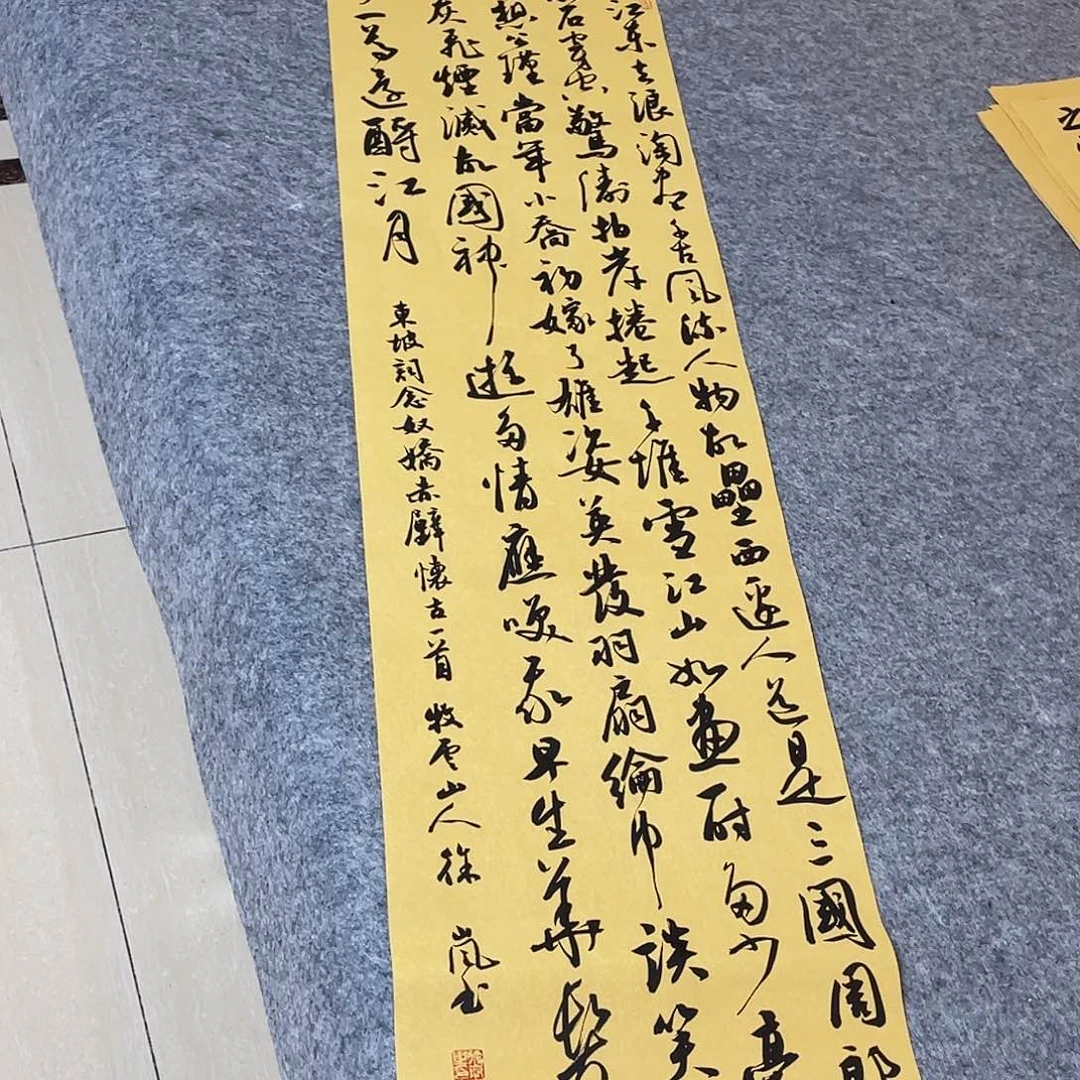 江東去浪淘盡千古風流人物故壘西邊人道是三國周郎
石穿空驚濤拍岸捲起千堆雪江山如畫一時多少豪
想公瑾當年小喬初嫁了雄姿英發羽扇綸巾談笑
灰飛煙滅故國神遊多情應笑我早生華髮
一尊還酹江月
東坡詞念奴嬌赤壁懷古一首 牧雲山人徐嵐書